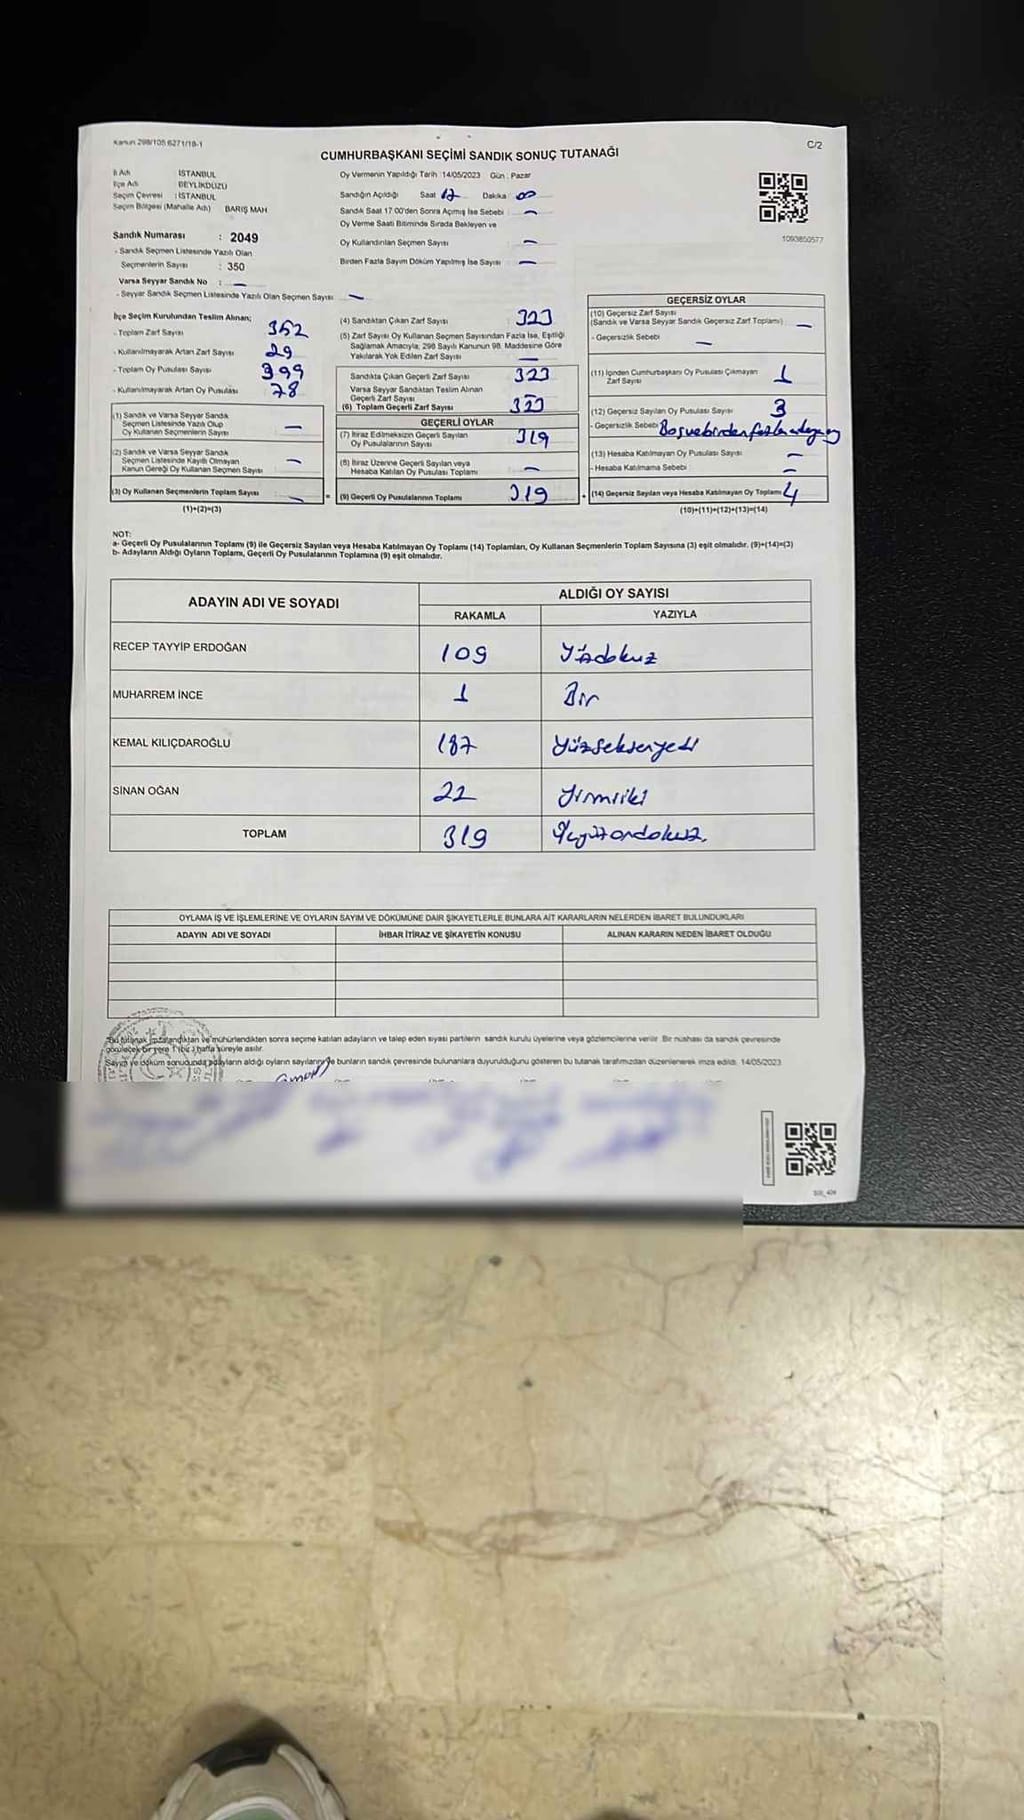 Kanun 298/105 6271/18-1
C/2
CUMHURBAŞKANI SEÇİMİ SANDIK SONUÇ TUTANAĞI
İl Adı İSTANBUL
İlçe Adı BEYLİKDÜZÜ
Seçim Çevresi : İSTANBUL
Seçim Bölgesi (Mahalle Adı) BARIŞ MAH
Sandık Numarası : 2049
- Sandık Seçmen Listesinde Yazılı Olan
Seçmenlerin Sayısı : 350
Varsa Seyyar Sandık No : —
- Seyyar Sandık Seçmen Listesinde Yazılı Olan Seçmen Sayısı —
Oy Vermenin Yapıldığı Tarih :14/05/2023 Gün : Pazar
Sandığın Açıldığı Saat 17 Dakika : 00
Sandık Saat 17.00'den Sonra Açımış İse Sebebi : —
Oy Verme Saati Bitiminde Sırada Bekleyen ve
Oy Kullandırılan Seçmen Sayısı —
Birden Fazla Sayım Döküm Yapılmış İse Sayısı : —
1093850577
İlçe Seçim Kurulundan Teslim Alınan;
- Toplam Zarf Sayısı 352
- Kullanılmayarak Artan Zarf Sayısı 29
- Toplam Oy Pusulası Sayısı 399
- Kullanılmayarak Artan Oy Pusulası 78
(1) Sandık ve Varsa Seyyar Sandık
Seçmen Listesinde Yazılı Olup
Oy Kullanan Seçmenlerin Sayısı —
(2) Sandık ve Varsa Seyyar Sandık
Seçmen Listesinde Kayıtlı Olmayan
Kanun Gereği Oy Kullanan Seçmen Sayısı —
(3) Oy Kullanan Seçmenlerin Toplam Sayısı —
(1)+(2)=(3)
(4) Sandıktan Çıkan Zarf Sayısı 323
(5) Zarf Sayısı Oy Kullanan Seçmen Sayısından Fazla İse, Eşitliği
Sağlamak Amacıyla, 298 Sayılı Kanunun 98. Maddesine Göre
Yakılarak Yok Edilen Zarf Sayısı —
Sandıkta Çıkan Geçerli Zarf Sayısı 323
Varsa Seyyar Sandıktan Teslim Alınan
Geçerli Zarf Sayısı
(6) Toplam Geçerli Zarf Sayısı 323
GEÇERLİ OYLAR
(7) İtiraz Edilmeksizin Geçerli Sayılan
Oy Pusulalarının Sayısı 319
(8) İtiraz Üzerine Geçerli Sayılan veya
Hesaba Katılan Oy Pusulası Toplamı —
(9) Geçerli Oy Pusulalarının Toplamı 319
GEÇERSİZ OYLAR
(10) Geçersiz Zarf Sayısı
(Sandık ve Varsa Seyyar Sandık Geçersiz Zarf Toplamı) —
- Geçersizlik Sebebi —
(11) İçinden Cumhurbaşkanı Oy Pusulası Çıkmayan
Zarf Sayısı 1
(12) Geçersiz Sayılan Oy Pusulası Sayısı 3
- Geçersizlik Sebebi Boş ve birden fazla
(13) Hesaba Katılmayan Oy Pusulası Sayısı —
- Hesaba Katılmama Sebebi —
(14) Geçersiz Sayılan veya Hesaba Katılmayan Oy Toplamı 4
(10)+(11)+(12)+(13)=(14)
NOT:
a- Geçerli Oy Pusulalarının Toplamı (9) ile Geçersiz Sayılan veya Hesaba Katılmayan Oy Toplamı (14) Toplamları, Oy Kullanan Seçmenlerin Toplam Sayısına (3) eşit olmalıdır. (9)+(14)=(3)
b- Adayların Aldığı Oyların Toplamı, Geçerli Oy Pusulalarının Toplamına (9) eşit olmalıdır.
ADAYIN ADI VE SOYADI ALDIĞI OY SAYISI
RAKAMLA YAZIYLA
RECEP TAYYİP ERDOĞAN 109 Yüzdokuz
MUHARREM İNCE 1 Bir
KEMAL KILIÇDAROĞLU 187 Yüzseksenyedi
SİNAN OĞAN 22 Yirmiiki
TOPLAM 319 Üçyüzondokuz.
OYLAMA İŞ VE İŞLEMLERİNE VE OYLARIN SAYIM VE DÖKÜMÜNE DAİR ŞİKAYETLERLE BUNLARA AİT KARARLARIN NELERDEN İBARET BULUNDUKLARI
ADAYIN ADI VE SOYADI İHBAR İTİRAZ VE ŞİKAYETİN KONUSU ALINAN KARARIN NEDEN İBARET OLDUĞU
Bu tutanak imzalandıktan ve mühürlendikten sonra seçime katılan adayların ve talep eden siyasi partilerin sandık kurulu üyelerine veya gözlemcilerine verilir. Bir nüshası da sandık çevresinde
görülecek bir yere 1 (bir) hafta süreyle asılır.
Sayım ve döküm sonucunda adayların aldığı oyların sayılarını ve bunların sandık çevresinde bulunanlara duyurulduğunu gösteren bu tutanak tarafımızdan düzenlenerek imza edildi. 14/05/2023